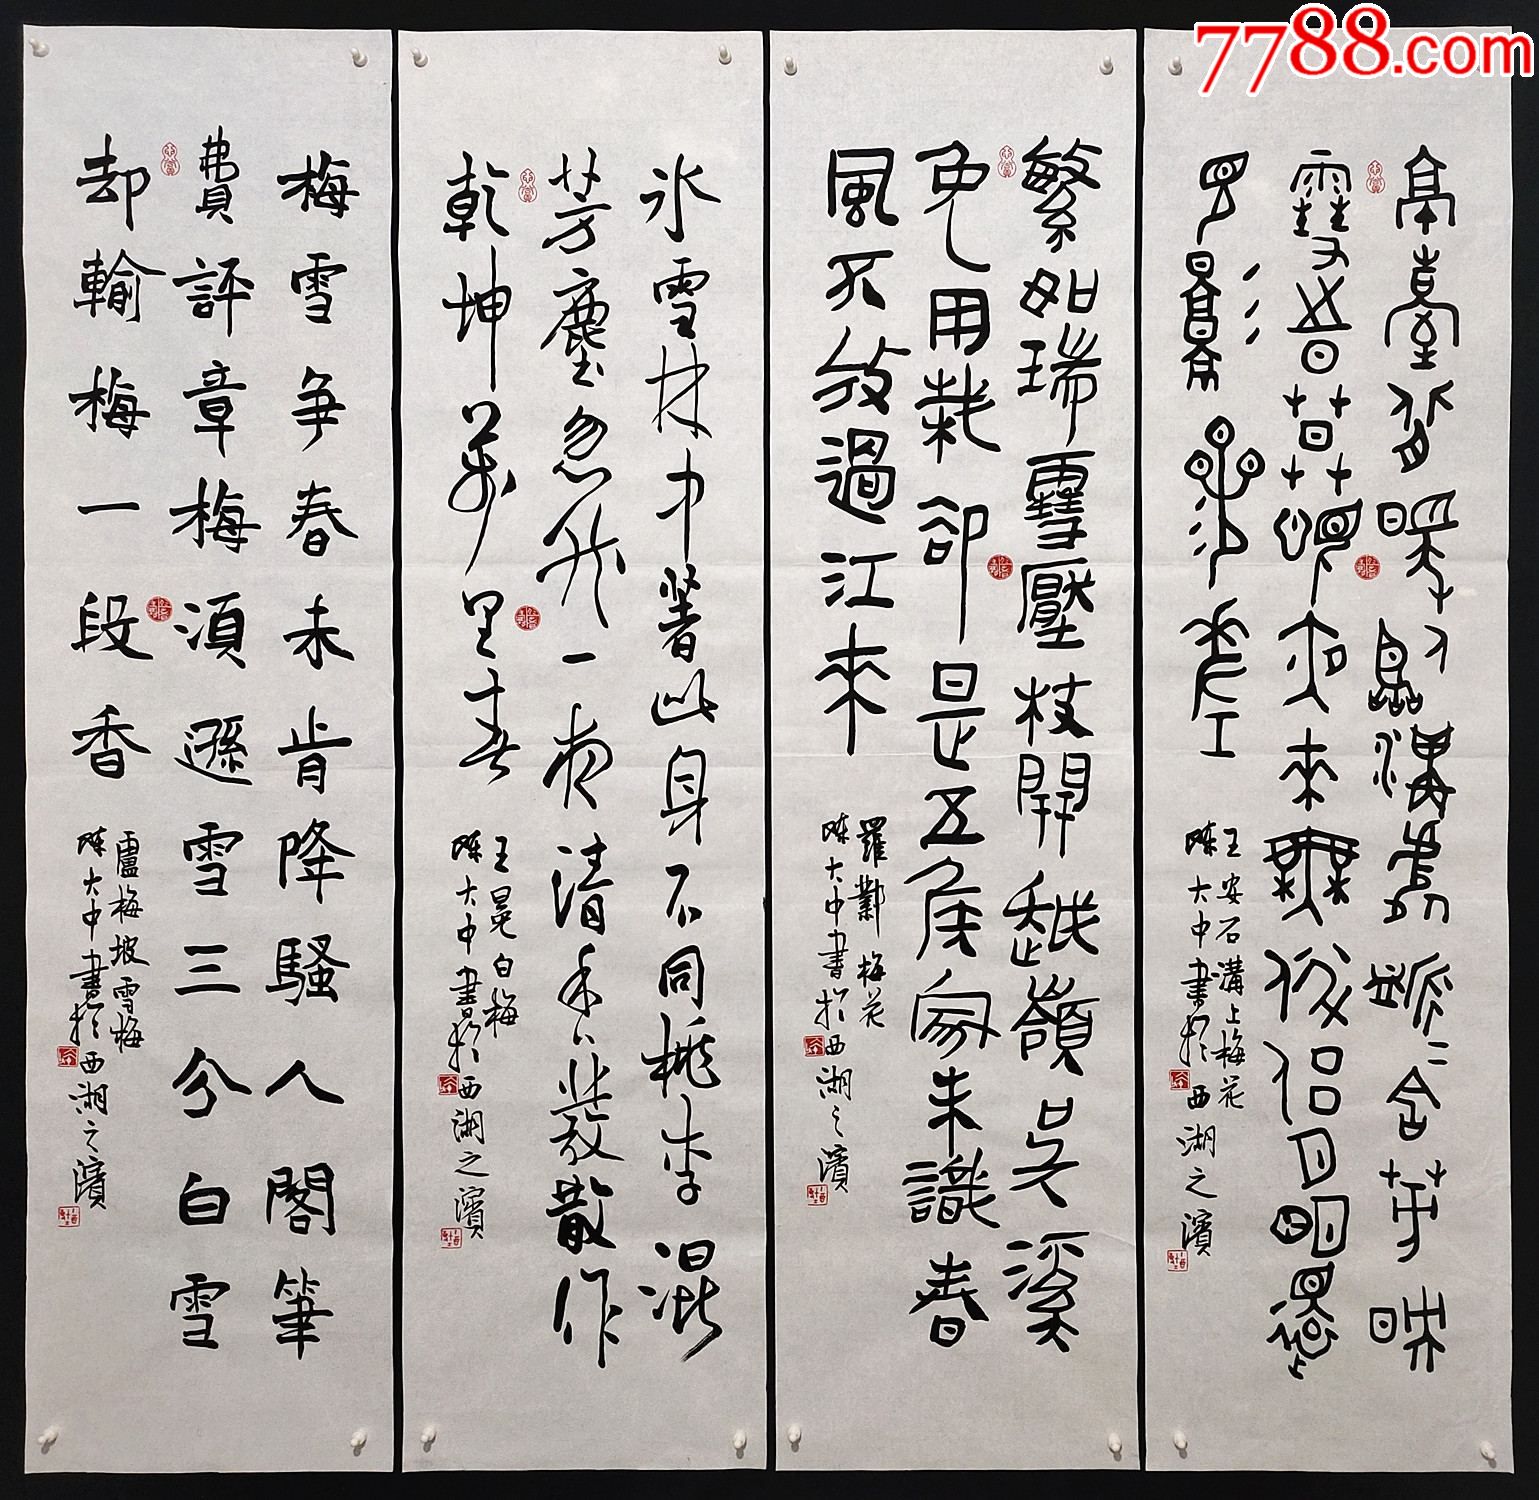 7788.com
亭臺背暖臨溝處脈=含芳映
雪時莫恨夜來無伴侶月明還
見影參差
王安石溝上梅花
陳大中書於西湖之濱
繁如瑞雪壓枝開越嶺吳溪
免用栽卻是五侯家未識春
風不放過江來
羅鄴梅花
陳大中書於西湖之濱
冰雪林中著此身不同桃李混
芳塵忽然一夜清香發散作
乾坤萬里春
王冕白梅
陳大中書於西湖之濱
梅雪争春未肯降騷人閣筆
費評章梅須遜雪三分白雪
却輸梅一段香
盧梅坡雪梅
陳大中書於西湖之濱